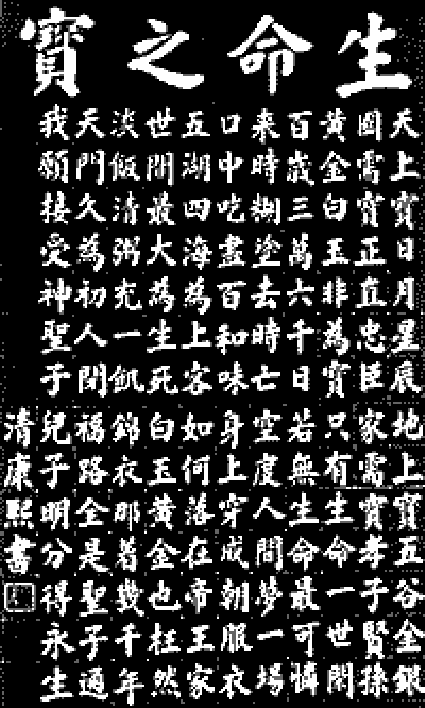 生命之寶
天上寶日月星辰地上寶五谷金銀
國需寶正直忠臣家需寶孝子賢孫
黃金白玉非為寶只有生命一世間
百歲三萬六千日若無生命最可憐
來時糊塗去時亡空度人間夢一場
口中吃盡百和味身上穿成朝服衣
五湖四海為上客如何落在帝王家
世間最大為生死白玉黃金也枉然
淡飯清粥充一飢錦衣那着幾千年
天門久為初人閉福路全是聖子通
我願接受神聖子兒子明分得永生
清康熙書